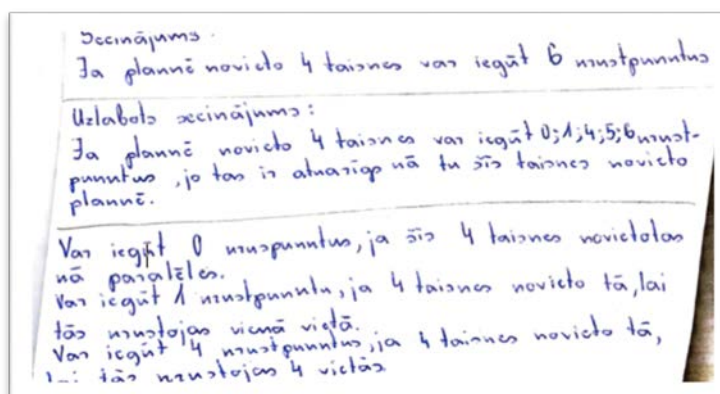 Secinājums.
Ja plaknē novieto 4 taisnes var iegūt 6 krustpunktus
Uzlabots secinājums:
Ja plaknē novieto 4 taisnes var iegūt 0;1;4;5;6 krust-
punktus, jo tas ir atkarīgs kā tu šīs taisnes novieto
plaknē.
Var iegūt 0 kruspunktus, ja šīs 4 taisnes novietotas
kā paralēles.
Var iegūt 1 krustpunktu, ja 4 taisnes novieto tā, lai
tās krustojas vienā vietā.
Var iegūt 4 krustpunktus, ja 4 taisnes novieto tā,
lai tās krustojas 4 vietās.